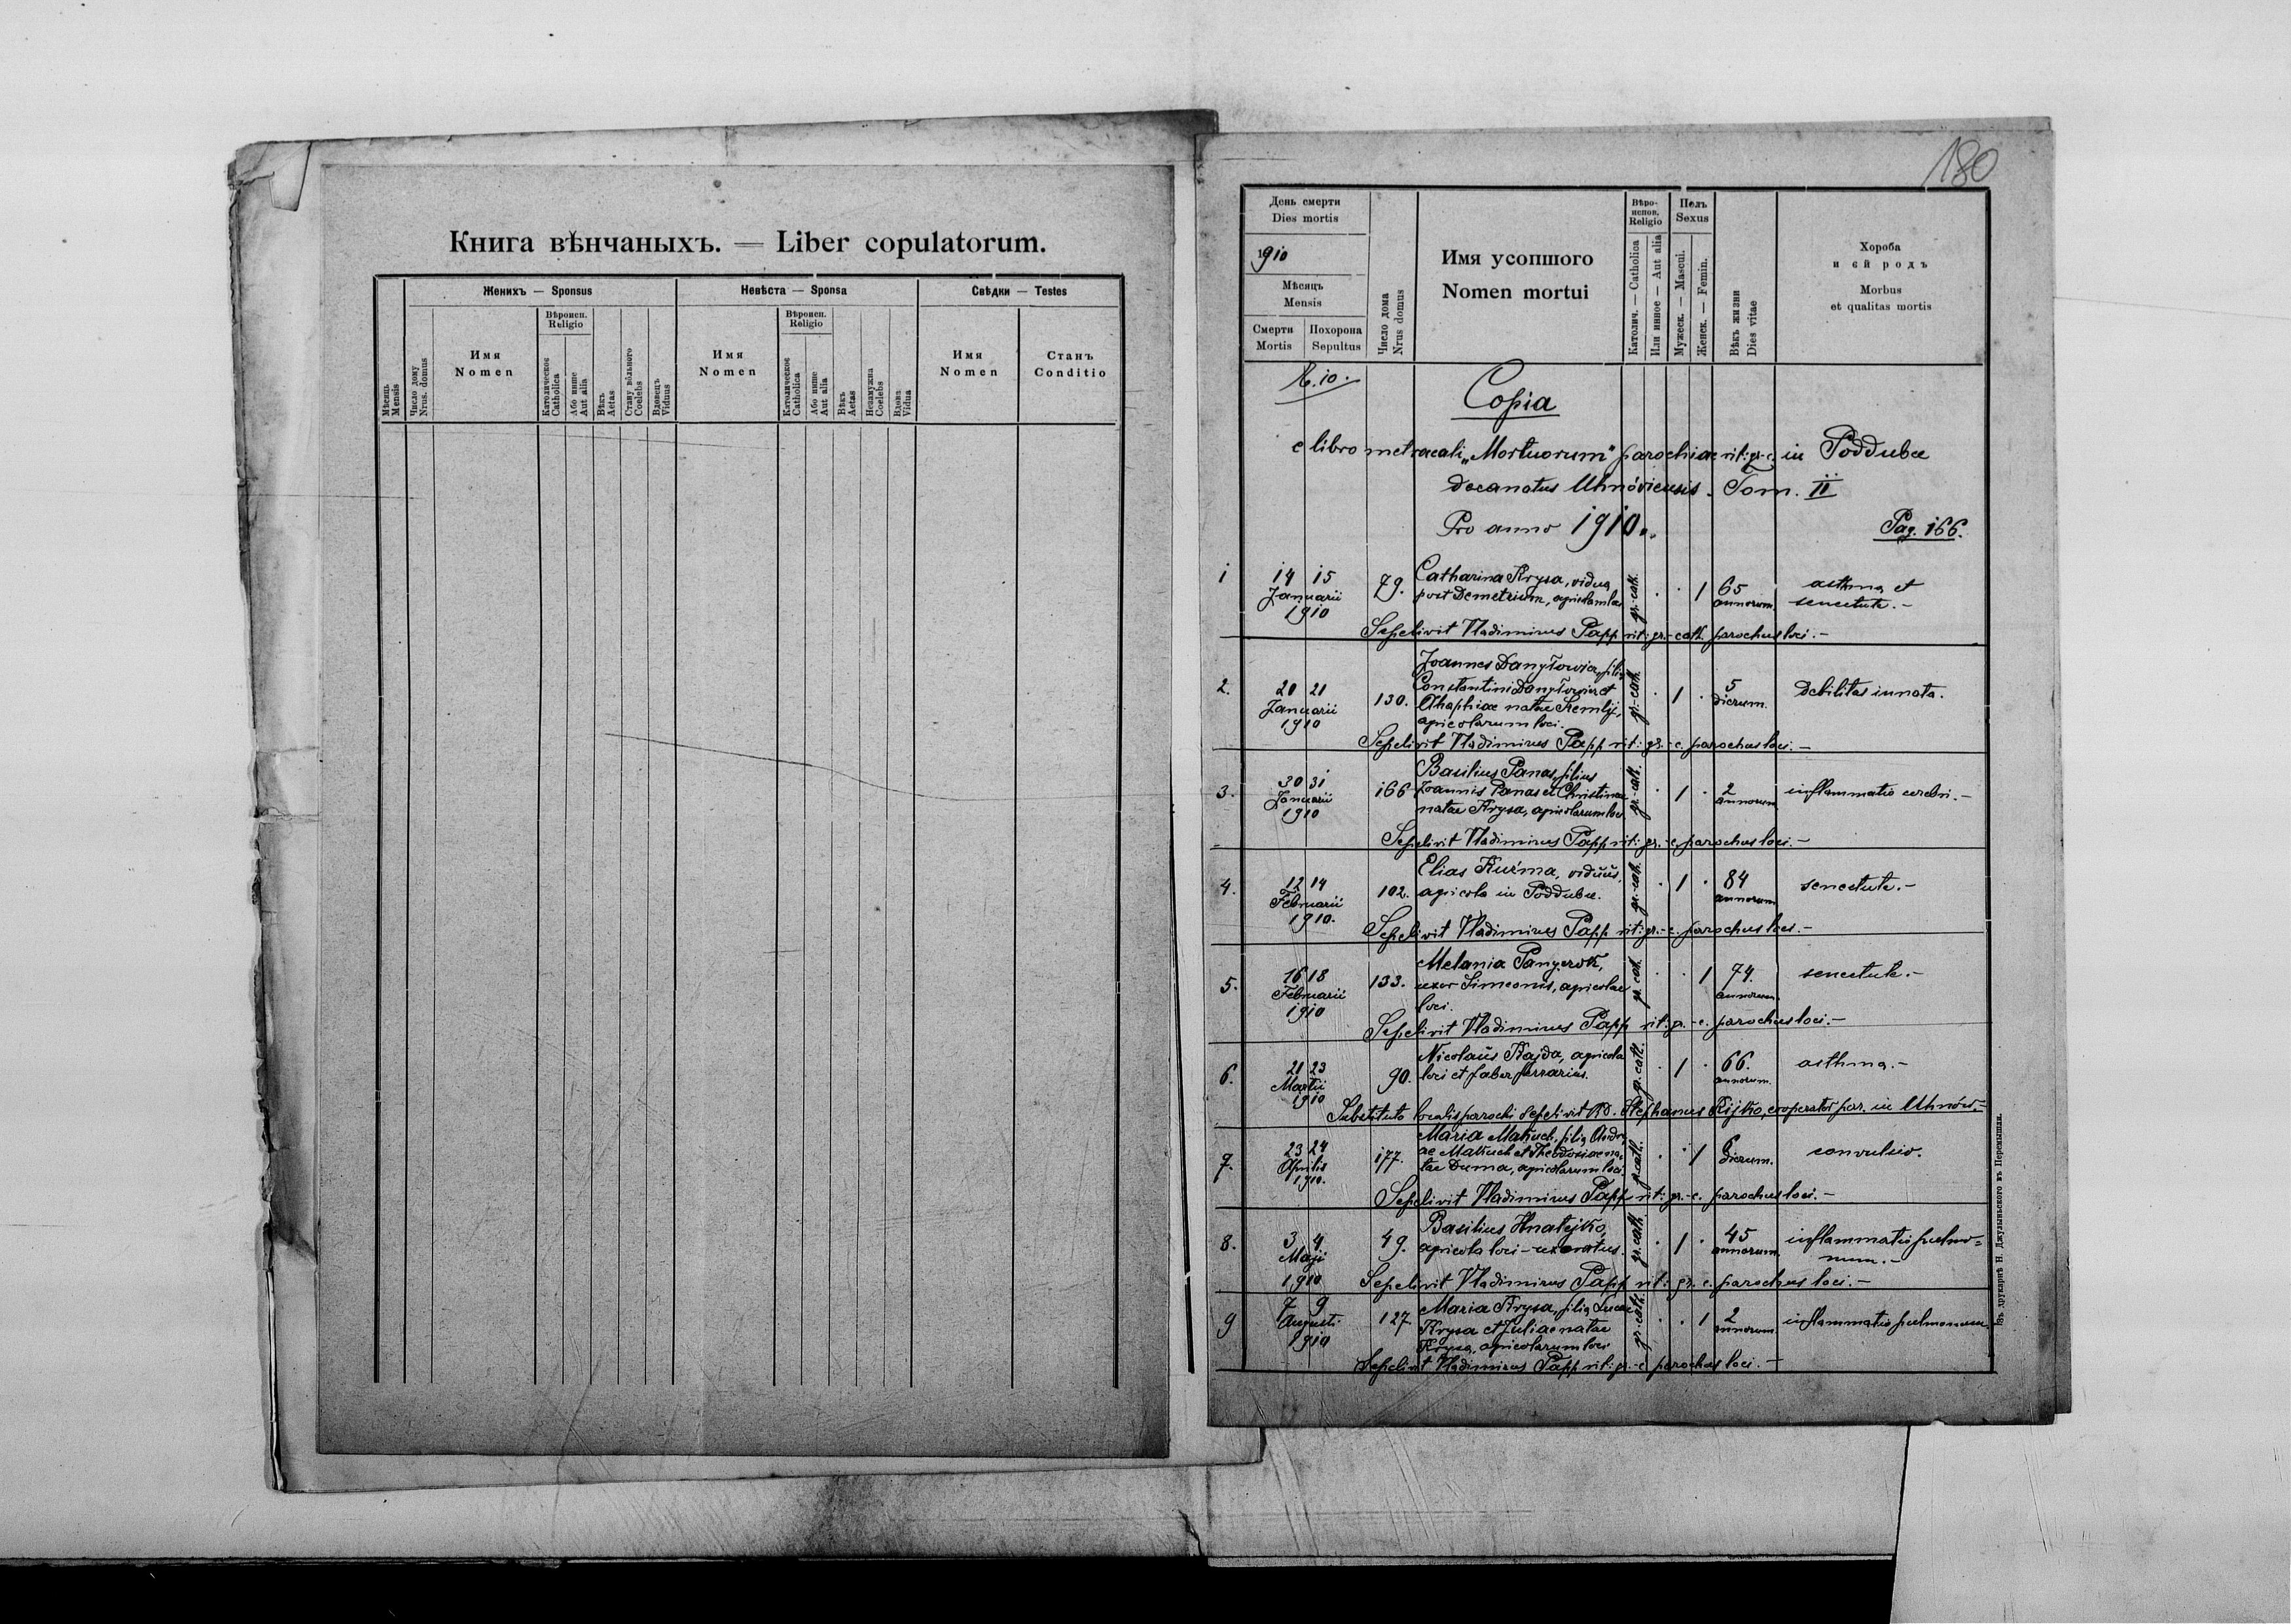 Книга вѣнчаныхъ. — Liber copulatorum.
Мѣсяць Mensis
Число дому Nrus. domus
Женихъ — Sponsus
Имя Nomen
Вѣроисп. Religio
Католическое Catholica
Або инше Aut alia
Вѣкъ Aetas
Стану вольного Coelebs
Вдовецъ Viduus
Невѣста — Sponsa
Имя Nomen
Вѣроисп. Religio
Католическое Catholica
Або инше Aut alia
Вѣкъ Aetas
Незамужна Coelebs
Вдова Vidua
Свѣдки — Testes
Имя Nomen
Станъ Conditio
180
День смерти
Dies mortis
1910
Мѣсяцъ
Mensis
Смерти Mortis
Похорона Sepultus
Число дома Nrus domus
Имя усопшого
Nomen mortui
Вѣро-испов. Religio
Католич. — Catholica
Или инное — Aut alia
Полъ Sexus
Мужеск. — Mascul.
Женск. — Femin.
Вѣкъ жизни Dies vitae
Хороба
и єй родъ
Morbus
et qualitas mortis
Copia
e libro metricali „Mortuorum" parochiae rit: gr.-c. in Poddubce
decanatus Uhnóviensis. Tom. II
Pro anno 1910.
Pag. 166.
1 14 15 Januarii 1910 79. Catharina Krysa, vidua
post Demetrium, agricolam loci gr.-cath. . . 1 65 annorum. asthma et senectute.-
Sepelivit Vladimirus Papp rit: gr.-cath. parochus loci.-
2. 20 21 Januarii 1910 130. Joannes Danyłowicz, filius
Constantini Danyłowicz et
Ahaphiae natae Semlij,
agricolarum loci. gr.-cath. . 1 . 5 dierum. Debilitas innata.
Sepelivit Vladimirus Papp rit: gr.-c. parochus loci.-
3. 30 31 Januarii 1910 166 Basilius Panas, filius
Joannis Panas et Christinae
natae Krysa, agricolarum loci gr.-cath. . 1 . 2 annorum inflammatio cerebri.-
Sepelivit Vladimirus Papp rit: gr.-c. parochus loci.-
4. 12 14 Februarii 1910. 102. Elias Kuźma, viduus,
agricola in Poddubce. gr.-cath. . 1 . 84 annorum senectute.-
Sepelivit Vladimirus Papp rit: gr.-c. parochus loci.-
5. 16 18 Februarii 1910 133. Melania
uxor Simeonis, agricolae
loci. gr. cath. . . 1 74. annorum. senectute.-
Sepelivit Vladimirus Papp rit: gr.-c. parochus loci.-
6. 21 23 Martii 1910 90. Nicolaus Kajda, agricola
loci et faber ferrarius. gr.-cath. . 1 . 66. annorum. asthma.-
Substituto localis parochi sepelivit Stephanus cooperator par. in Uhnów.-
7. 23 24 Aprilis 1910. 177. Maria Matuch, filia Andre-
ae Matuch et Theodosiae na-
tae Duma, agricolarum loci gr.-cath. . . 1 6 dierum. convulsio.
Sepelivit Vladimirus Papp rit: gr.-c. parochus loci.-
8. 3 4 Maji 1910 49. Basilius Hnatejko,
agricola loci - uxoratus. gr.-cath. . 1 . 45 annorum. inflammatio pulmo=
num.-
Sepelivit Vladimirus Papp rit: gr.-c. parochus loci.-
9 7 9 Augusti 1910 127 Maria Krysa, filia Lucae
Krysa et Juliae natae
Krysa, agricolarum loci gr.-cath. . . 1 2 annorum inflammatio pulmonum.
Sepelivit Vladimirus Papp rit: gr.-c. parochus loci.-
Въ друкарнѣ Н. Джулыньского въ Перемышли.